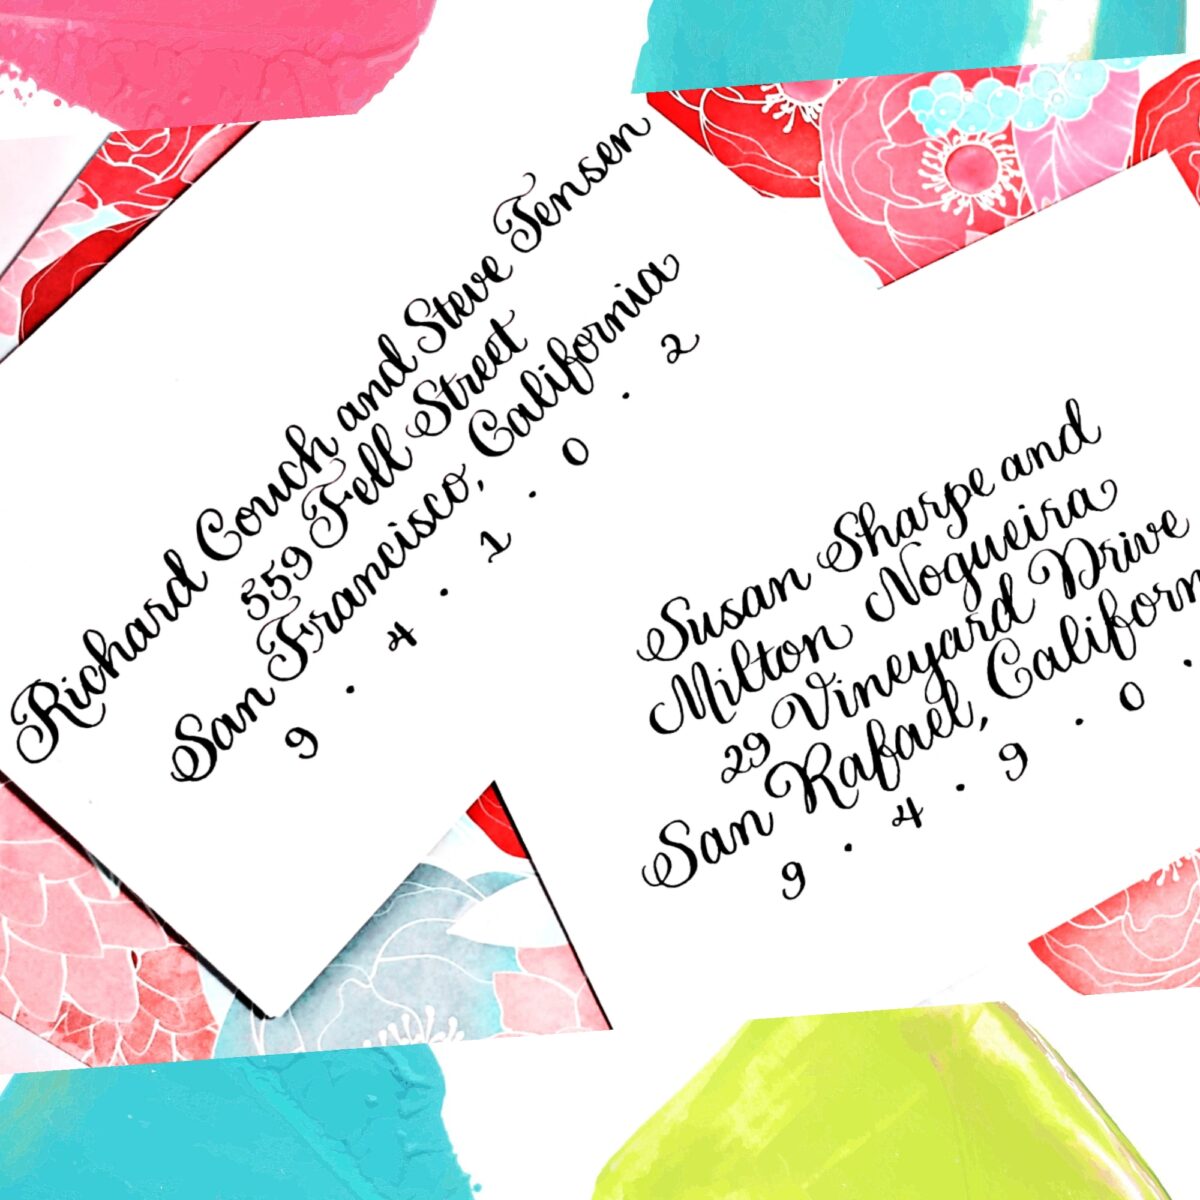 Richard Couch and Steve Tensen
559 Fell Street
San Francisco, California
9 . 4 . 1 . 0 . 2
Susan Sharpe and
Milton Nogueira
29 Vineyard Drive
San Rafael, Californ
9 . 4 . 9 . 0 .